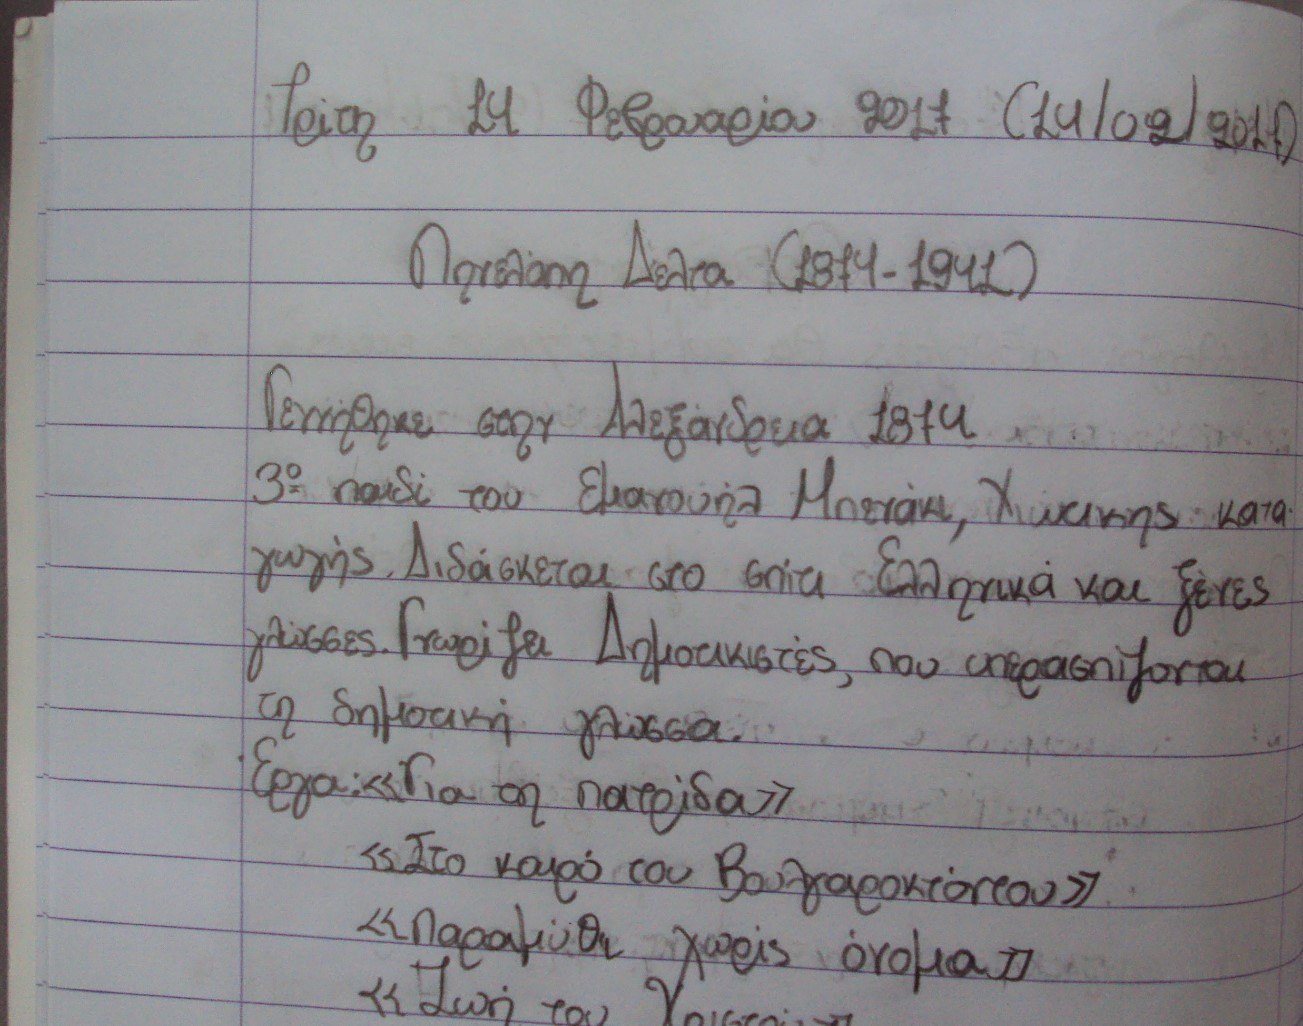 Τρίτη 14 Φεβρουαρίου 2017 (14/02/2017)
Πηνελόπη Δέλτα (1874-1941)
Γεννήθηκε στην Αλεξάνδρεια 1874
3ο παιδί του Εμανουήλ Μπενάκι, Χιώτικης κατα
γωγής. Διδάσκεται στο σπίτι Ελληνικά και ξένες
γλώσσες. Γνωρίζει Δημοτικιστές, που υπερασπίζονται
τη δημοτική γλώσσα.
Έργα: «Για τη πατρίδα»
«Στο καιρό του Βουλγαροκτόντου»
«Παραμύθι χωρίς όνομα»
«Ζωή του Χριστού»